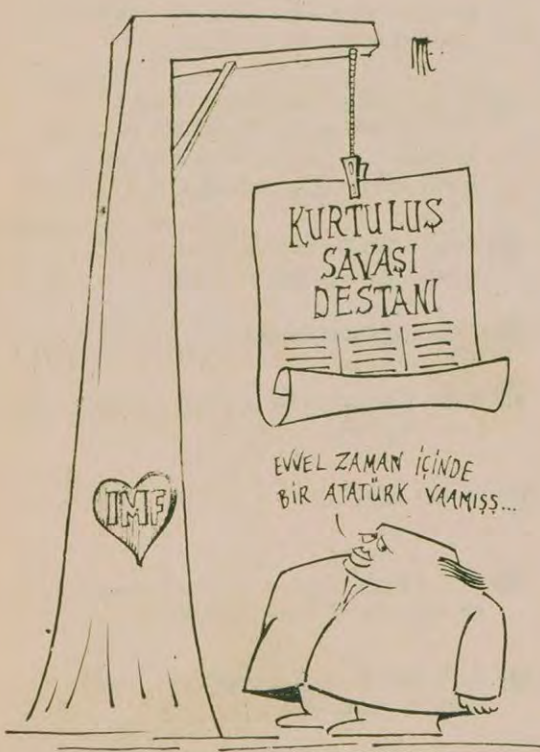 KURTULUŞ
SAVAŞI
DESTANI
EVVEL ZAMAN İÇİNDE
BİR ATATÜRK VAAMIŞŞ...
IMF